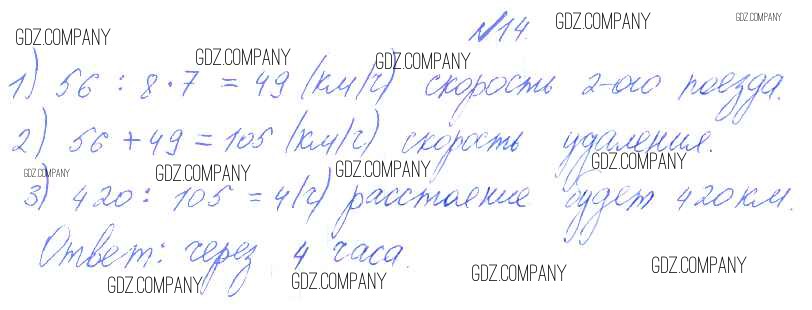 №14.
GDZ.COMPANY GDZ.COMPANY GDZ.COMPANY
GDZ.COMPANY GDZ.COMPANY
1) 56 : 8 · 7 = 49 (км/ч) скорость 2-ого поезда.
2) 56 + 49 = 105 (км/ч) скорость удаления.
GDZ.COMPANY GDZ.COMPANY GDZ.COMPANY GDZ.COMPANY
3) 420 : 105 = 4 (ч) расстояние будет 420 км.
Ответ: через 4 часа.
GDZ.COMPANY GDZ.COMPANY GDZ.COMPANY GDZ.COMPANY